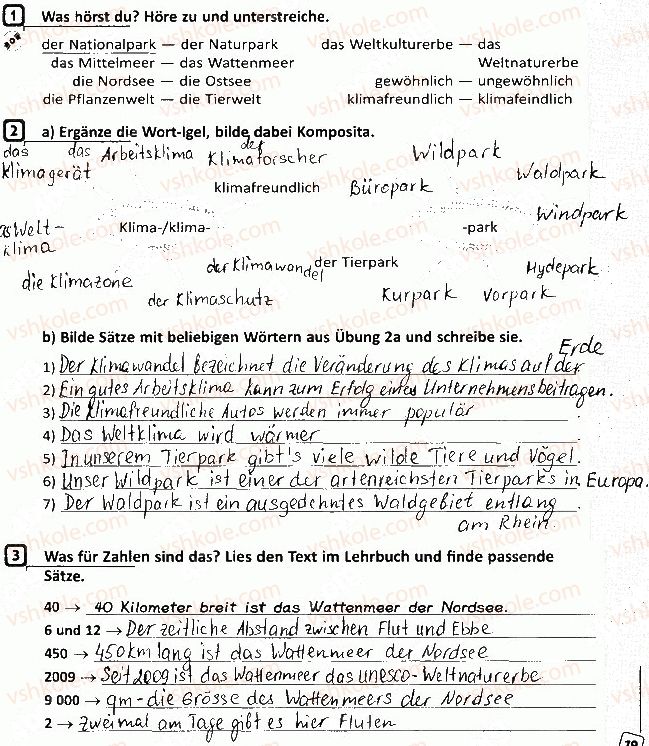 1 Was hörst du? Höre zu und unterstreiche.
der Nationalpark — der Naturpark das Weltkulturerbe — das
das Mittelmeer — das Wattenmeer Weltnaturerbe
die Nordsee — die Ostsee gewöhnlich — ungewöhnlich
die Pflanzenwelt — die Tierwelt klimafreundlich — klimafeindlich
2 a) Ergänze die Wort-Igel, bilde dabei Komposita.
das Klimagerät das Arbeitsklima der Klimaforscher Wildpark
klimafreundlich Büropark Waldpark
as Welt-klima Klima-/klima- -park Windpark
der Klimawandel der Tierpark Hydepark
die Klimazone der Klimaschutz Kurpark Vorpark
b) Bilde Sätze mit beliebigen Wörtern aus Übung 2a und schreibe sie.
1) Der Klimawandel bezeichnet die Veränderung des Klimas auf der Erde
2) Ein gutes Arbeitsklima kann zum Erfolg eines Unternehmens beitragen.
3) Die klimafreundliche Autos werden immer populär.
4) Das Weltklima wird wärmer.
5) In unserem Tierpark gibt's viele wilde Tiere und Vögel.
6) Unser Wildpark ist einer der artenreichsten Tierparks in Europa.
7) Der Waldpark ist ein ausgedehntes Waldgebiet entlang.
am Rhein.
3 Was für Zahlen sind das? Lies den Text im Lehrbuch und finde passende
Sätze.
40 → 40 Kilometer breit ist das Wattenmeer der Nordsee.
6 und 12 → Der zeitliche Abstand zwischen Flut und Ebbe
450 → 450 km lang ist das Wattenmeer der Nordsee
2009 → Seit 2009 ist das Wattenmeer das UNESCO-Weltnaturerbe
9 000 → qm - die Grösse des Wattenmeers der Nordsee
2 → Zweimal am Tage gibt es hier Fluten
19
vshkole.com